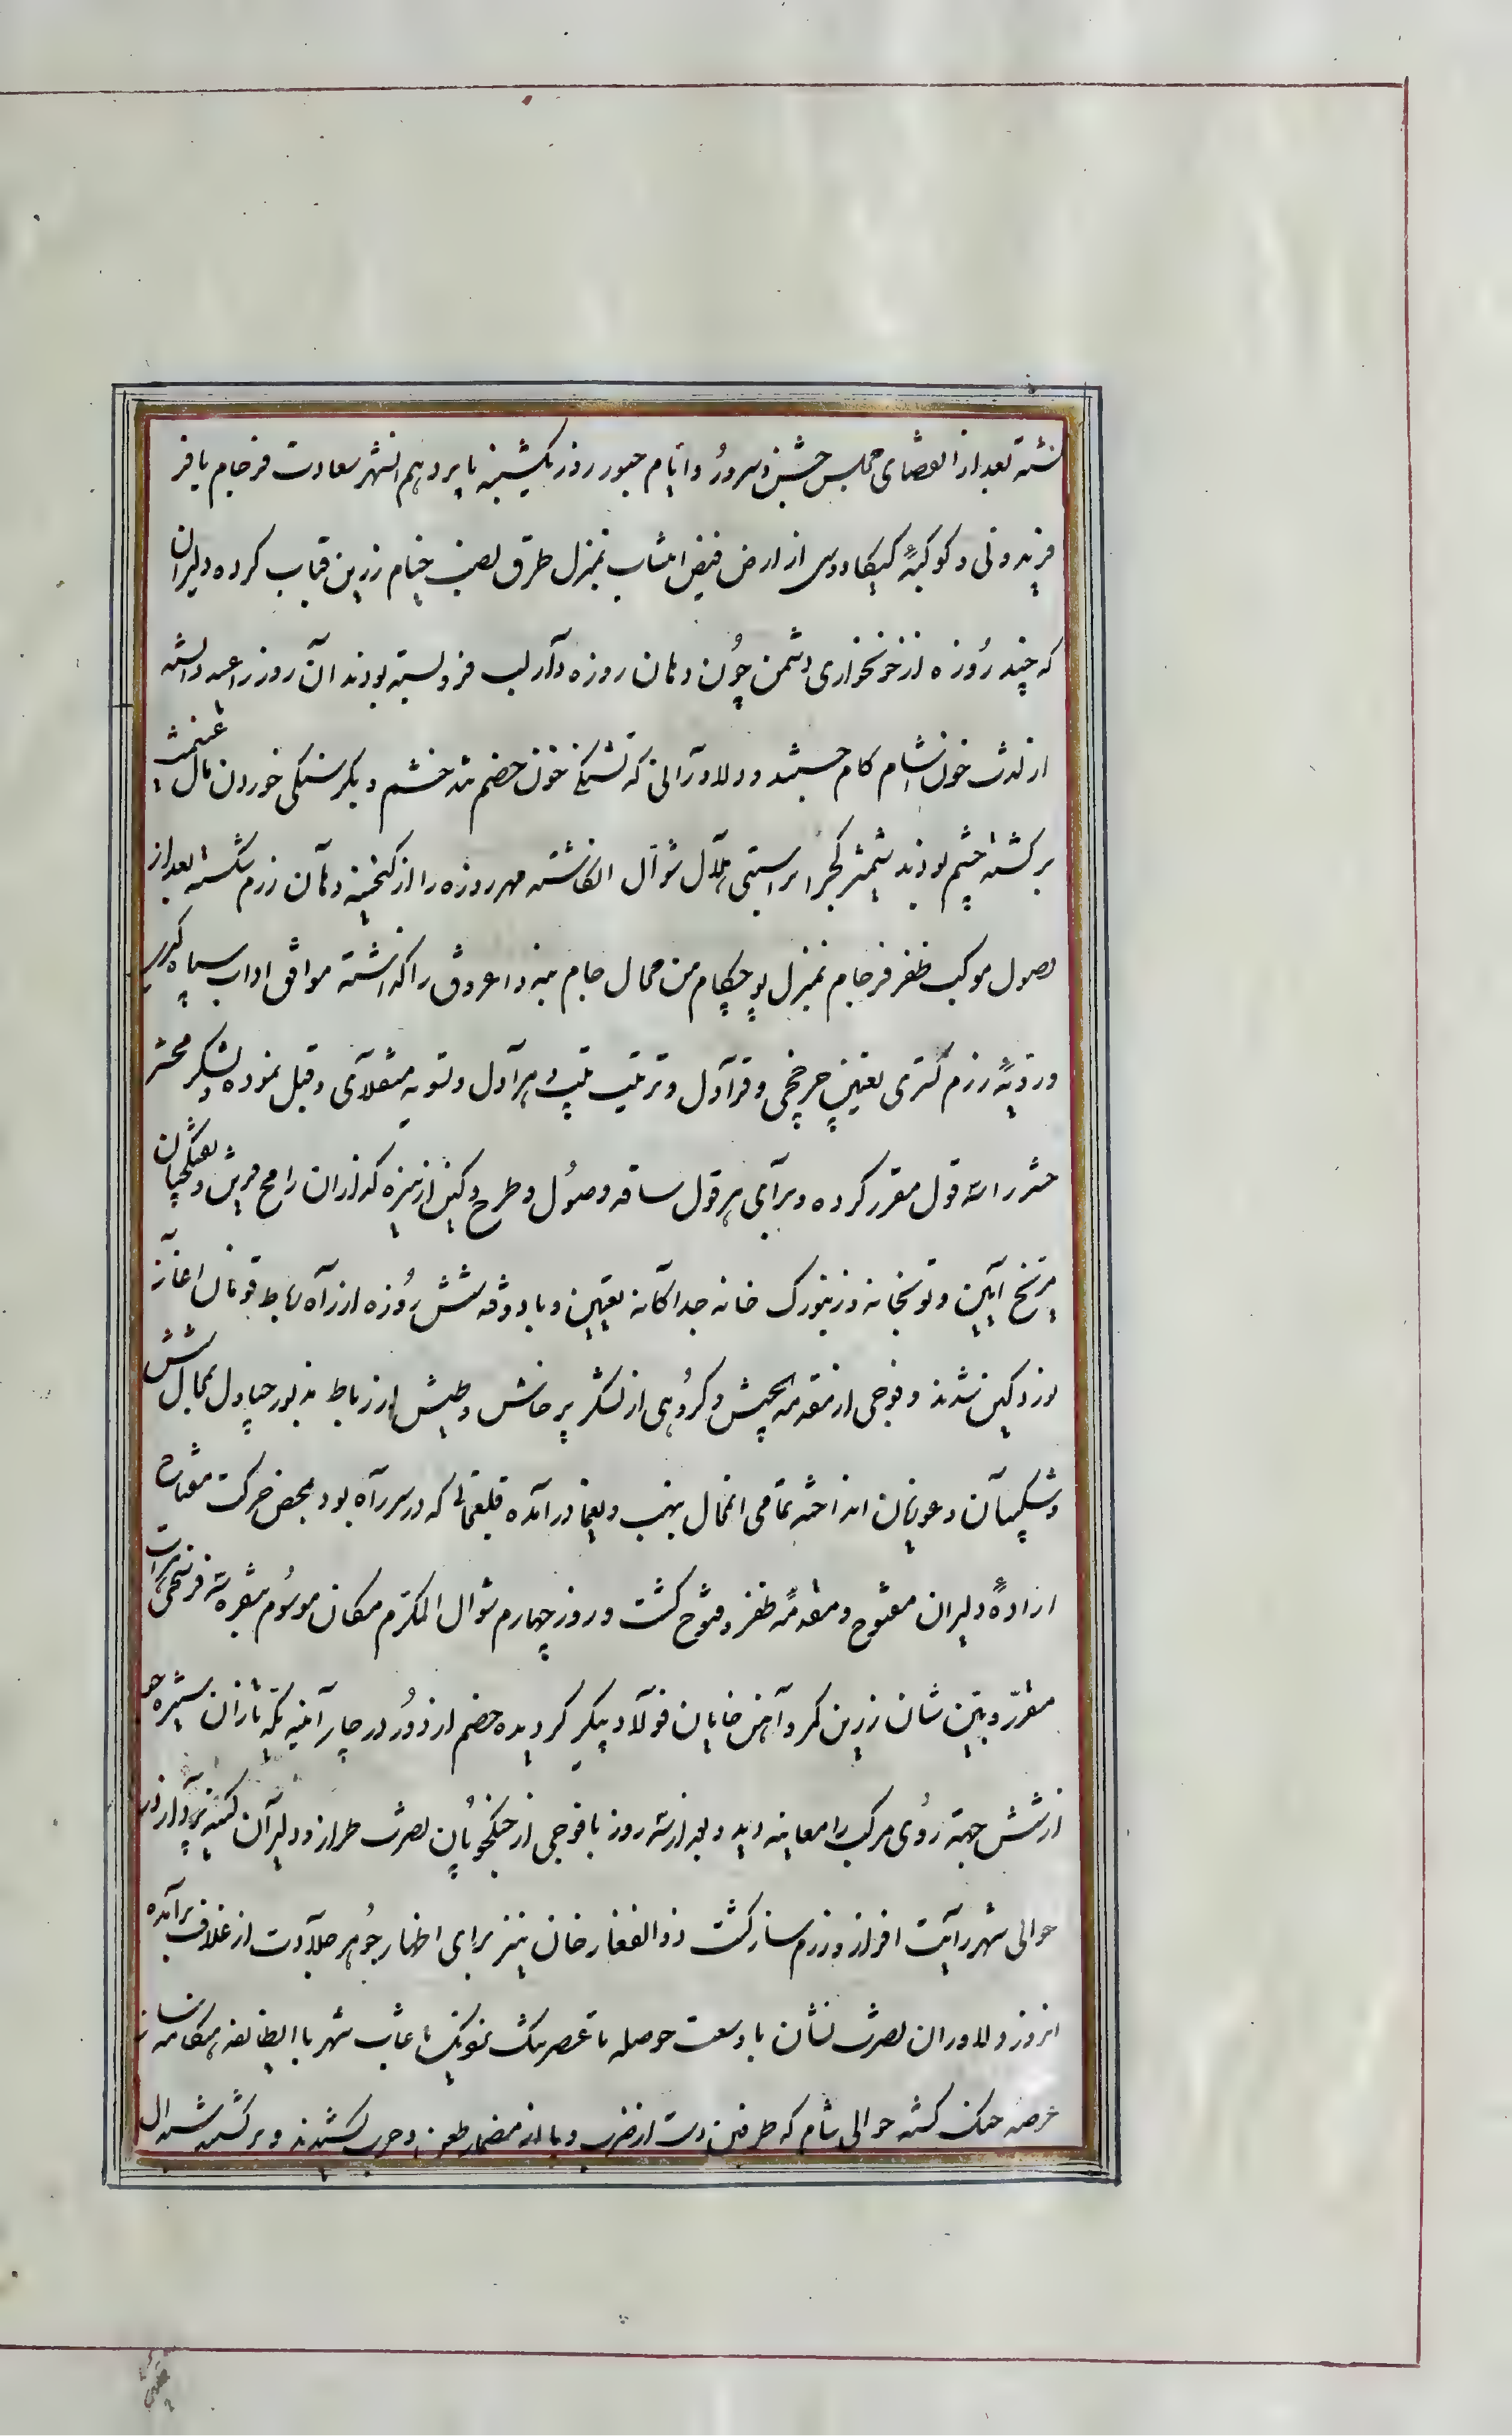 نشته بعد از انقضای مجلس جشن و سرور و ایام حبور روز یکشنبه پانزدهم الشهر سعادت فرجام با فر
فریدونی و کوکبهٔ کیکاوسی از ارض فیض انتساب بمنزل طرق نصب خیام زرین قباب کرده دلیران
که چند روزه از خونخواری دشمن چون دهان روزه دار لب فرو بسته بودند آن روز را عید دانسته
از لذت خون آشام کام جستند و دلاورانی که تشنگی خون خصم تند خشم و بگرسنگی خوردن مال غنیمت
بر کشته چشم بودند شمشیر کج را براستی هلال شوال انکاشته مهر روزه را از کنجینه دهان رزم شکستند بعد از
وصول موکب ظفر فرجام بمنزل بوچکام من محال جام بنه و اغروق را گذاشته موافق اداب سپاه کری
و ردیهٔ رزم کستری بتعیین چرخچی و قراول و ترتیب تیپ و هراول و تسویه منقلای و قیل نموده لشکر محشر
حشر را سه قول مقرر کرده و برای هر قول ساقه و صول و طرح و کمین از نیزه کذاران رامح فریش و تفنگچیان
مریخ آیین و توپخانه و زنبورک خانه جداکانه تعیین و با دوقه شش روزه از راه رباط تومان اغاز
نوردکین شدند و فوجی از مقدمه الجیش و کروهی از لشکر پرخاش و طیش از رباط مذبور چپاول بمحال شش
و شکیبان و غوریان انداخته تمامی المحال بنهب و یغما در آمده قلعجاتی که در سر راه بود بمحض حرکت مفتاح
ارادهٔ دلیران مفتوح و مقدمهٔ ظفر و فتوح کشت و روز چهارم شوال المکرم مکان موسوم بنقره سه فرسخی هرات
مقر رویین تنان زرین کمر و آهن خایان فولاد پیکر کردیده خصم از دور در چار آینه یکه تازان ستیزه جو
از شش جهة روی مرک را معاینه دید و بعد از سه روز با فوجی از جنکجویان نصرت طراز و دلیران کینه پرداز در
حوالی شهر رایت افراز و رزم ساز کشت ذوالفقار خان نیز برای اظهار جوهر جلادت از غلاف برآمده
انروز دلاوران نصرت نشان با وسعت حوصله تا عصر تنک بنوی تا عتاب شهر با انطایفه هنکامه ساز
عرصه جنک کشته حوالی شام که طرفین دست از ضرب و پا از مضمار طعن و حرب کشیدند و برکشتند